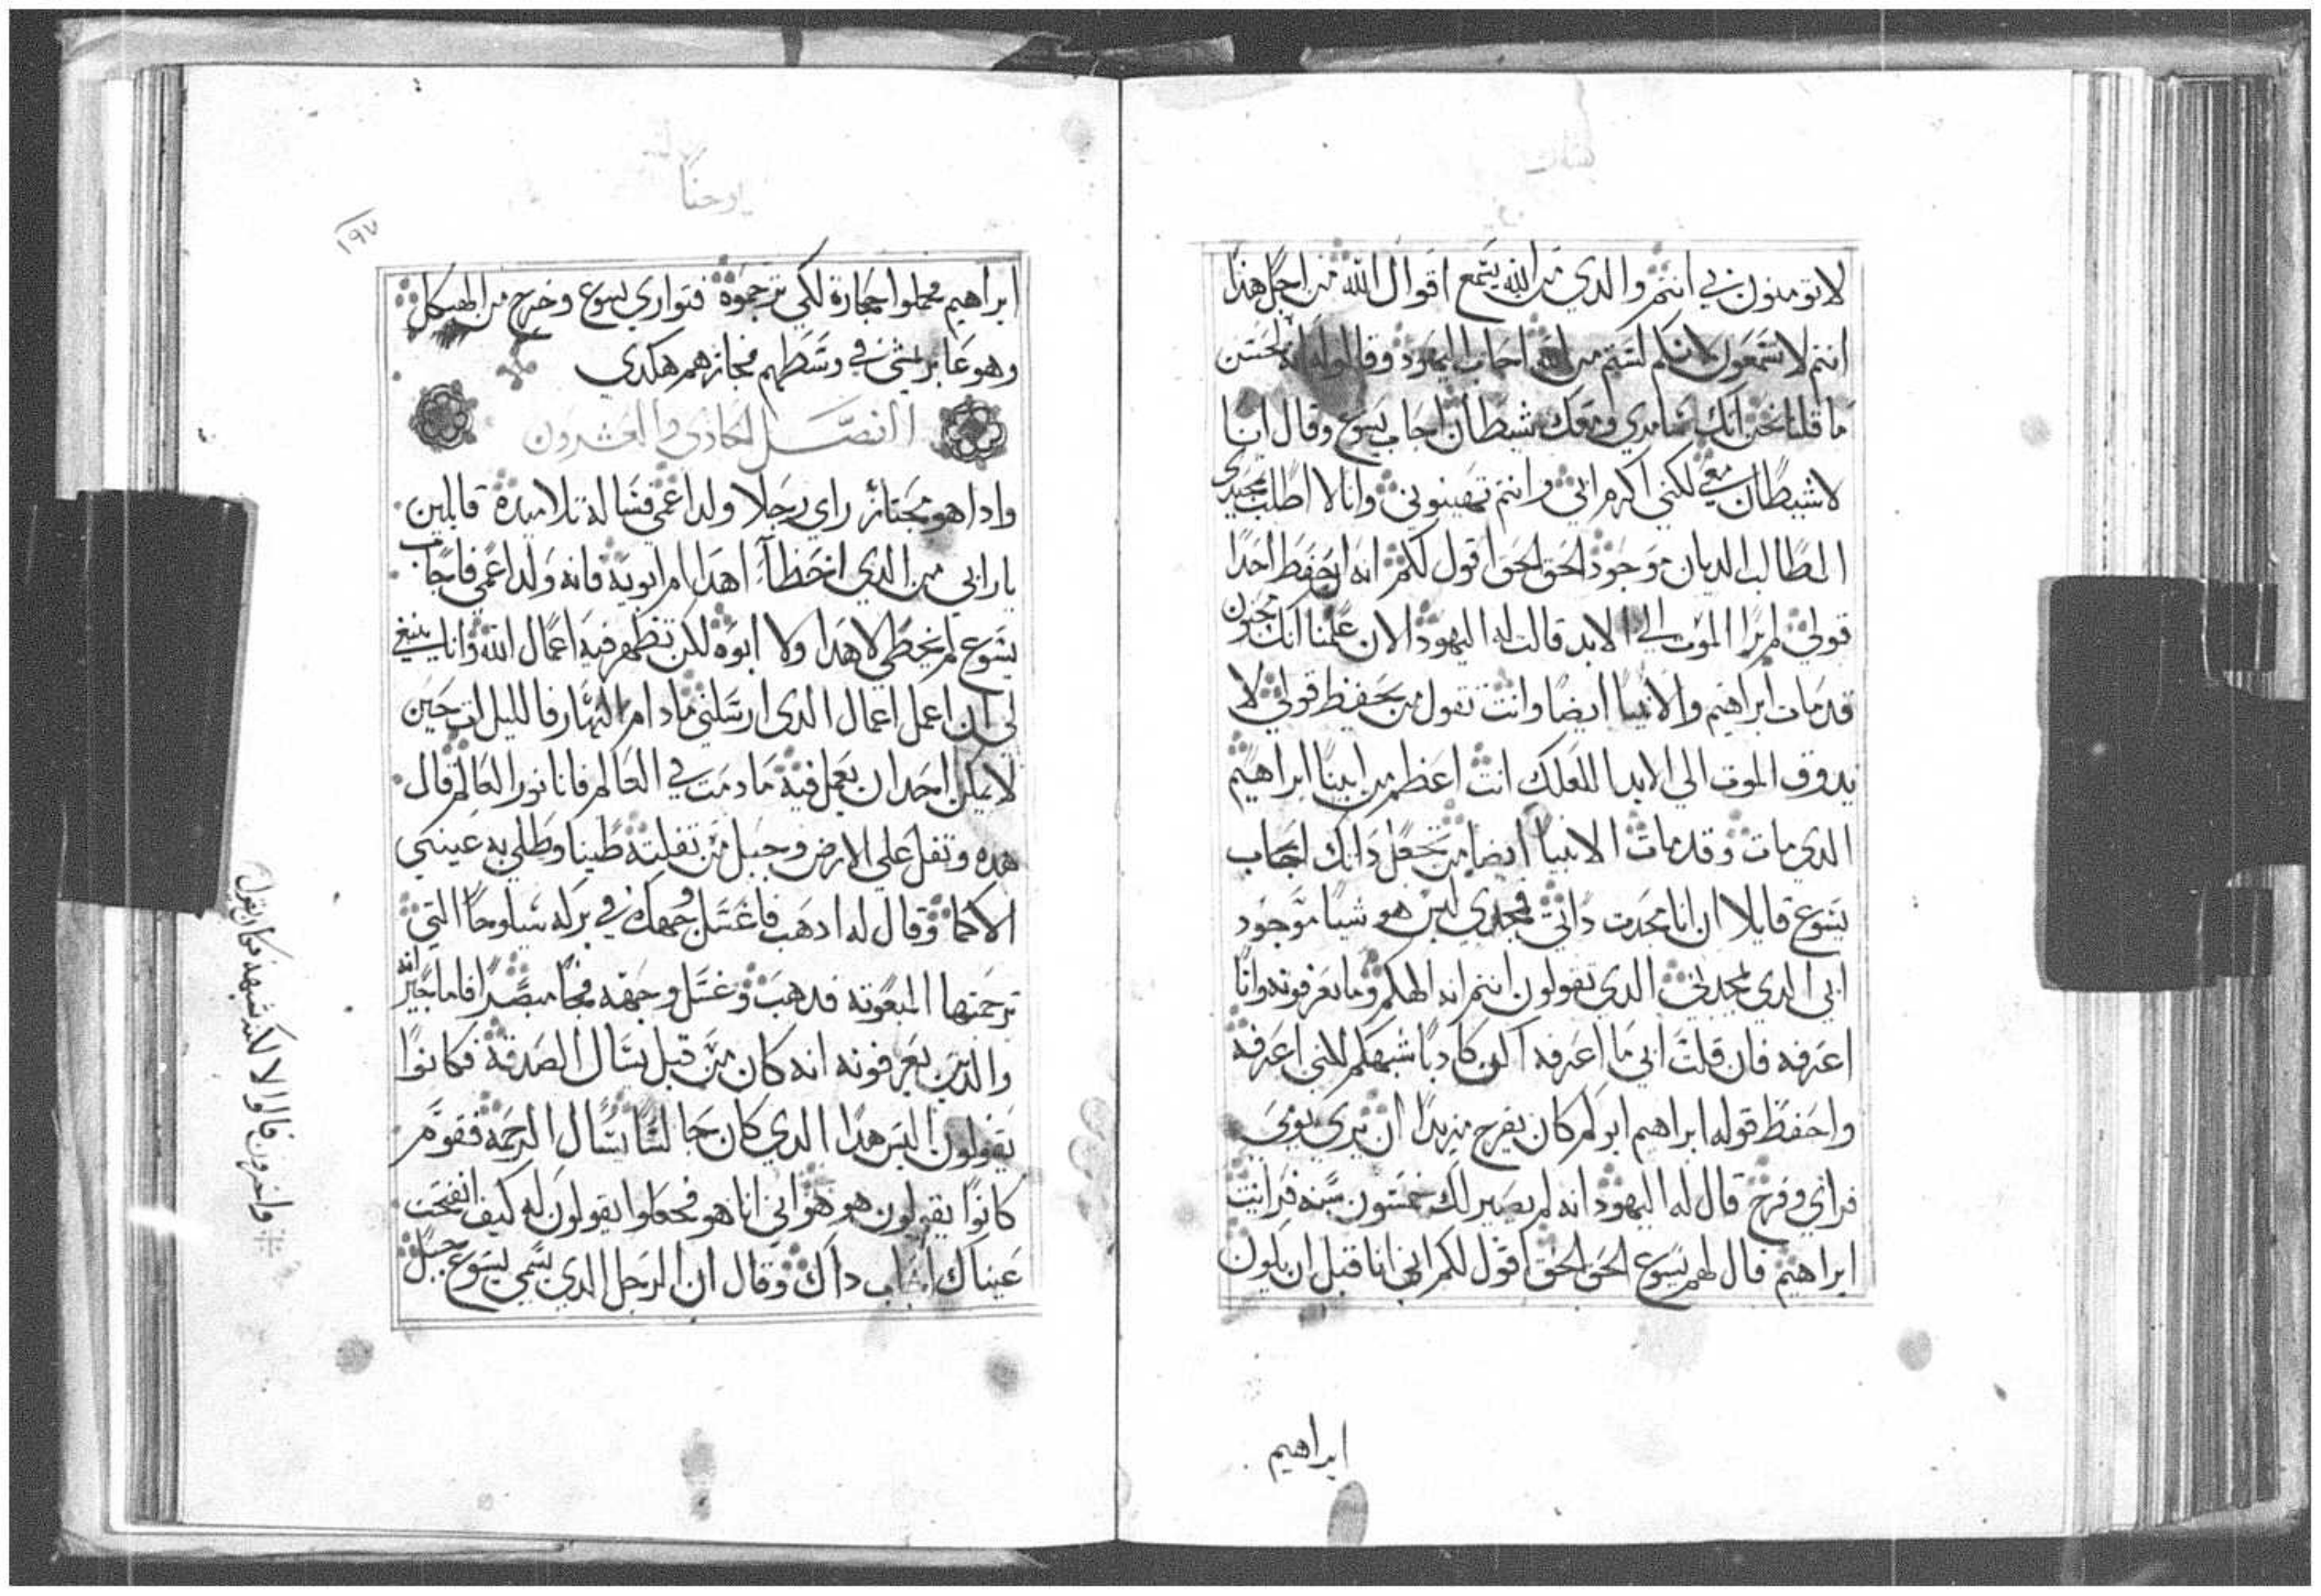 لا تومنون بي انتم والدي من الله يسمع اقوال الله من اجل هذا
انتم لا تسمعون لانكم لستم من الله اجاب اليهود وقالوا له الحسن
ما قلنا نحن انك سامري ومعك شيطان اجاب يسوع وقال انا
لا شيطان معي لكنني اكرم ابي وانتم تهينوني وانا لا اطلب مجدي
الطالب الديان موجود الحق الحق اقول لكم انه ان حفظ احدا
قولي لم يرا الموت الي الابد قالت له اليهود الان علمنا انك مجنون
قد مات ابراهيم والانبيا ايضا وانت تقول من يحفظ قولي لا
يدوق الموت الي الابد العلك انت اعظم من ابينا ابراهيم
الدي مات وقد مات الانبيا ايضا من تجعل داتك اجاب
يسوع قايلا ان انا مجدت داتي فمجدي ليس هو شيا موجود
ابي الدي يمجدني الدي تقولون انتم انه الهكم وما تعرفونه وانا
اعرفه فان قلت اني ما اعرفه اكون كادبا شبهكم لانني اعرفه
واحفظ قوله ابراهيم ابوكم كان يفرح مريدا ان يري يومي
فراي وفرح قال له اليهود انه لم يصير لك خمسون سنه فرايت
ابراهيم قال لهم يسوع الحق الحق اقول لكم اني انا قبل ان يكون
ابراهيم
يوحنا
١٩٧
ابراهيم فحملوا حجارة لكي ترجموه فتواري يسوع وخرج من الهيكل
وهو عابر يمشي في وسطهم فجازهم هكدي
الفصل الحادي والعشرون
وادا هو مجتاز راي رجلا ولد اعمي فساله تلاميده قايلين
يارابي من الدي اخطا اهدا ام ابويه فانه ولد اعمي فاجاب
يسوع لم يخطي لا هدا ولا ابوه لكن تظهر فيه اعمال الله وانا ينبغي
لي ان اعمل اعمال الدي ارسلني ما دام النهار فالليل ات حين
لا يمكن احد ان يعمل فيه ما دمت في العالم فانا نور العالم قال
هده وتفل علي الارض وجبل من تفلته طينا وطلي به عيني
الاكما وقال له ادهب فاغسل وجهك في بركه سلوحا التي
ترجمتها المبعوته فدهب وغسل وجهه فجا مبصرا فاما جيرانه
والدين يعرفونه انه كان من قبل يسال الصدقة فكانوا
يقولون اليس هدا الدي كان جالسا يسال الرحمه فقوم
كانوا يقولون هو هو اني انا هو فجعلوا يقولون له كيف انفتحت
عيناك اجاب داك وقال ان الرجل الدي يسمي يسوع جبل
واخرون قالوا لا لكنه شبهه فكان يقول